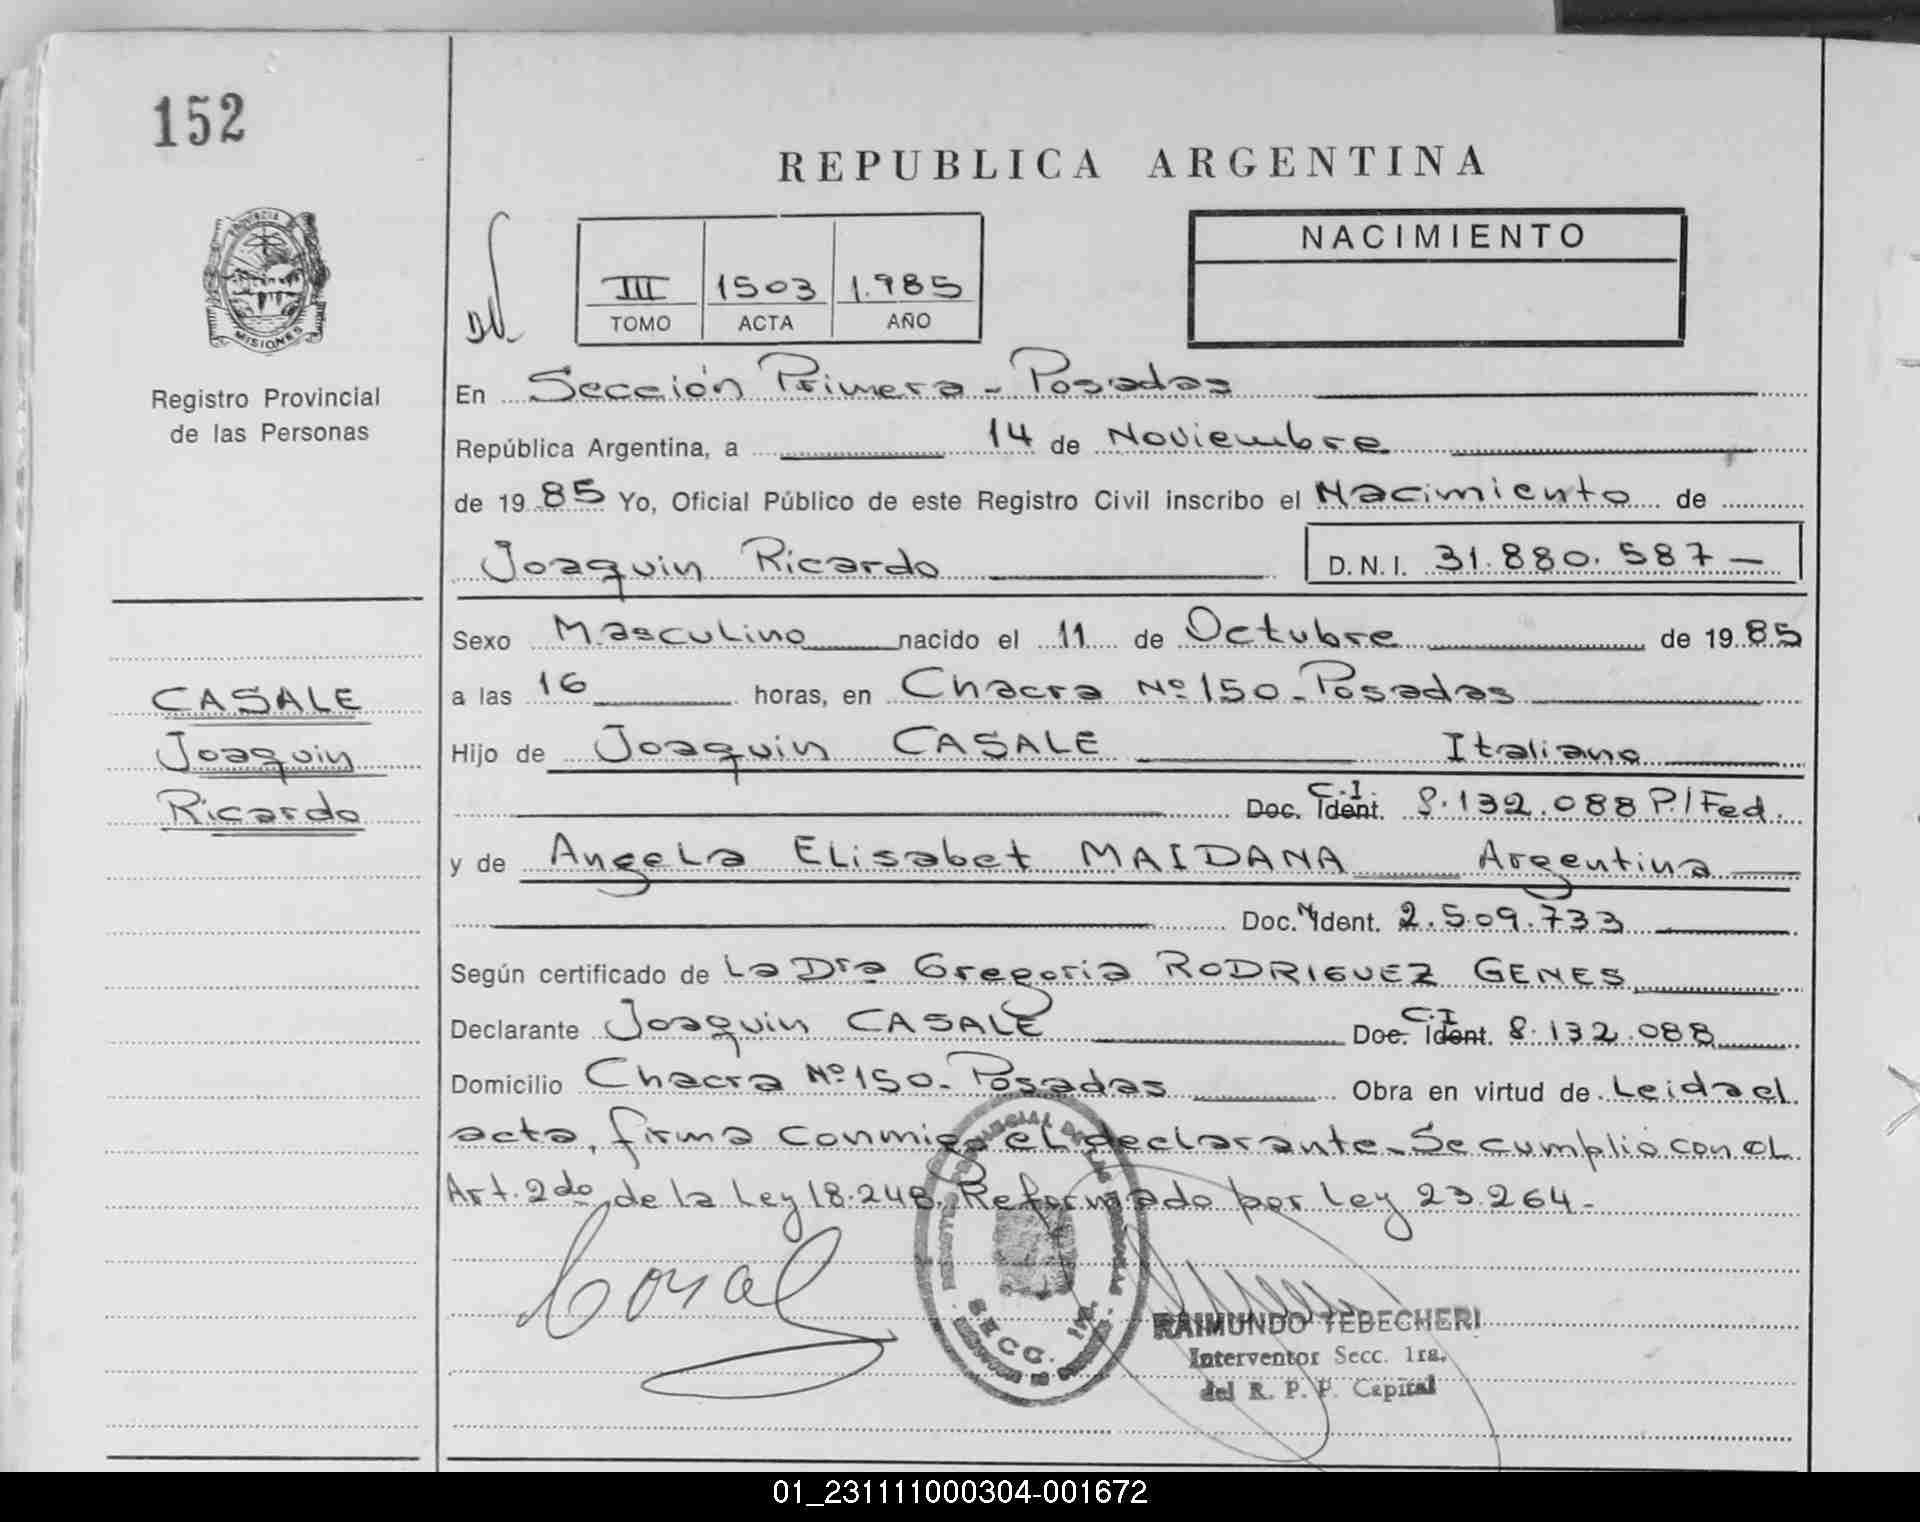 152
REPUBLICA ARGENTINA
PROVINCIA DE
MISIONES
Registro Provincial
de las Personas
III 1503 1.985
TOMO ACTA AÑO
NACIMIENTO
En Sección Primera - Posadas
República Argentina, a 14 de Noviembre
de 1985 Yo, Oficial Público de este Registro Civil inscribo el Nacimiento de
Joaquin Ricardo D.N.I. 31.880.587 —
Sexo Masculino nacido el 11 de Octubre de 1985
CASALE
Joaquin
Ricardo
a las 16 horas, en Chacra Nº 150 - Posadas
Hijo de Joaquin CASALE Italiano
Doc. Ident. C.I. 8.132.088 P./Fed.
y de Angela Elisabet MAIDANA Argentina
Doc. Ident. 2.509.733
Según certificado de La Dra Gregoria RODRIGUEZ GENES
Declarante Joaquin CASALE Doc. Ident. C.I 8.132.088
Domicilio Chacra Nº 150 - Posadas Obra en virtud de Leida el
acta, firma conmigo el declarante - Se cumplió con el
Art. 2do de la Ley 18.248. Reformado por Ley 23.264 -
SECC. 1ra.
RAIMUNDO TEBECHERI
Interventor Secc. 1ra.
del R. P. P. Capital
01_231111000304-001672